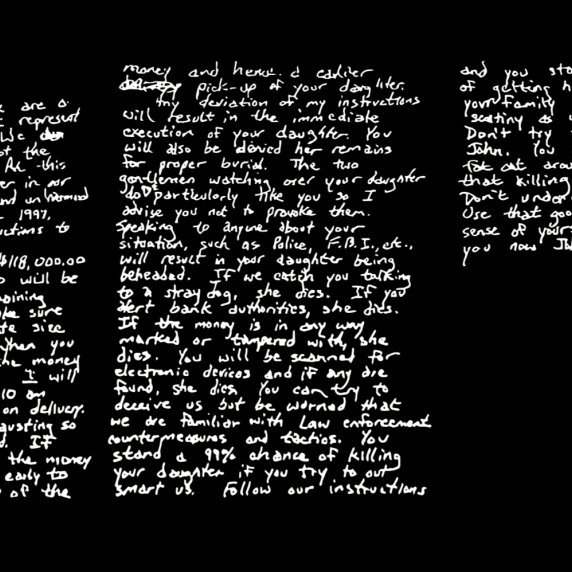 e are a
t represent
We
t the
At this
er in our
nd unharmed
1997,
ctions to
$118,000.00
will be
aining
ke sure
te size
When you
he money
I will
10 am
on delivery.
austing so
d. If
the money
early to
of the
money and hence a earlier
pick-up of your daughter.
Any deviation of my instructions
will result in the immediate
execution of your daughter. You
will also be denied her remains
for proper burial. The two
gentlemen watching over your daughter
do not particularly like you so I
advise you not to provoke them.
Speaking to anyone about your
situation, such as Police, F.B.I., etc.,
will result in your daughter being
beheaded. If we catch you talking
to a stray dog, she dies. If you
alert bank authorities, she dies.
If the money is in any way
marked or tampered with, she
dies. You will be scanned for
electronic devices and if any are
found, she dies. You can try to
deceive us but be warned that
we are familiar with Law enforcement
countermeasures and tactics. You
stand a 99% chance of killing
your daughter if you try to out
smart us. Follow our instructions
and you sta
of getting h
your family
scrutiny as
Don't try
John. You
fat cat arou
that killing
Don't under
Use that goo
sense of your
you now Jo